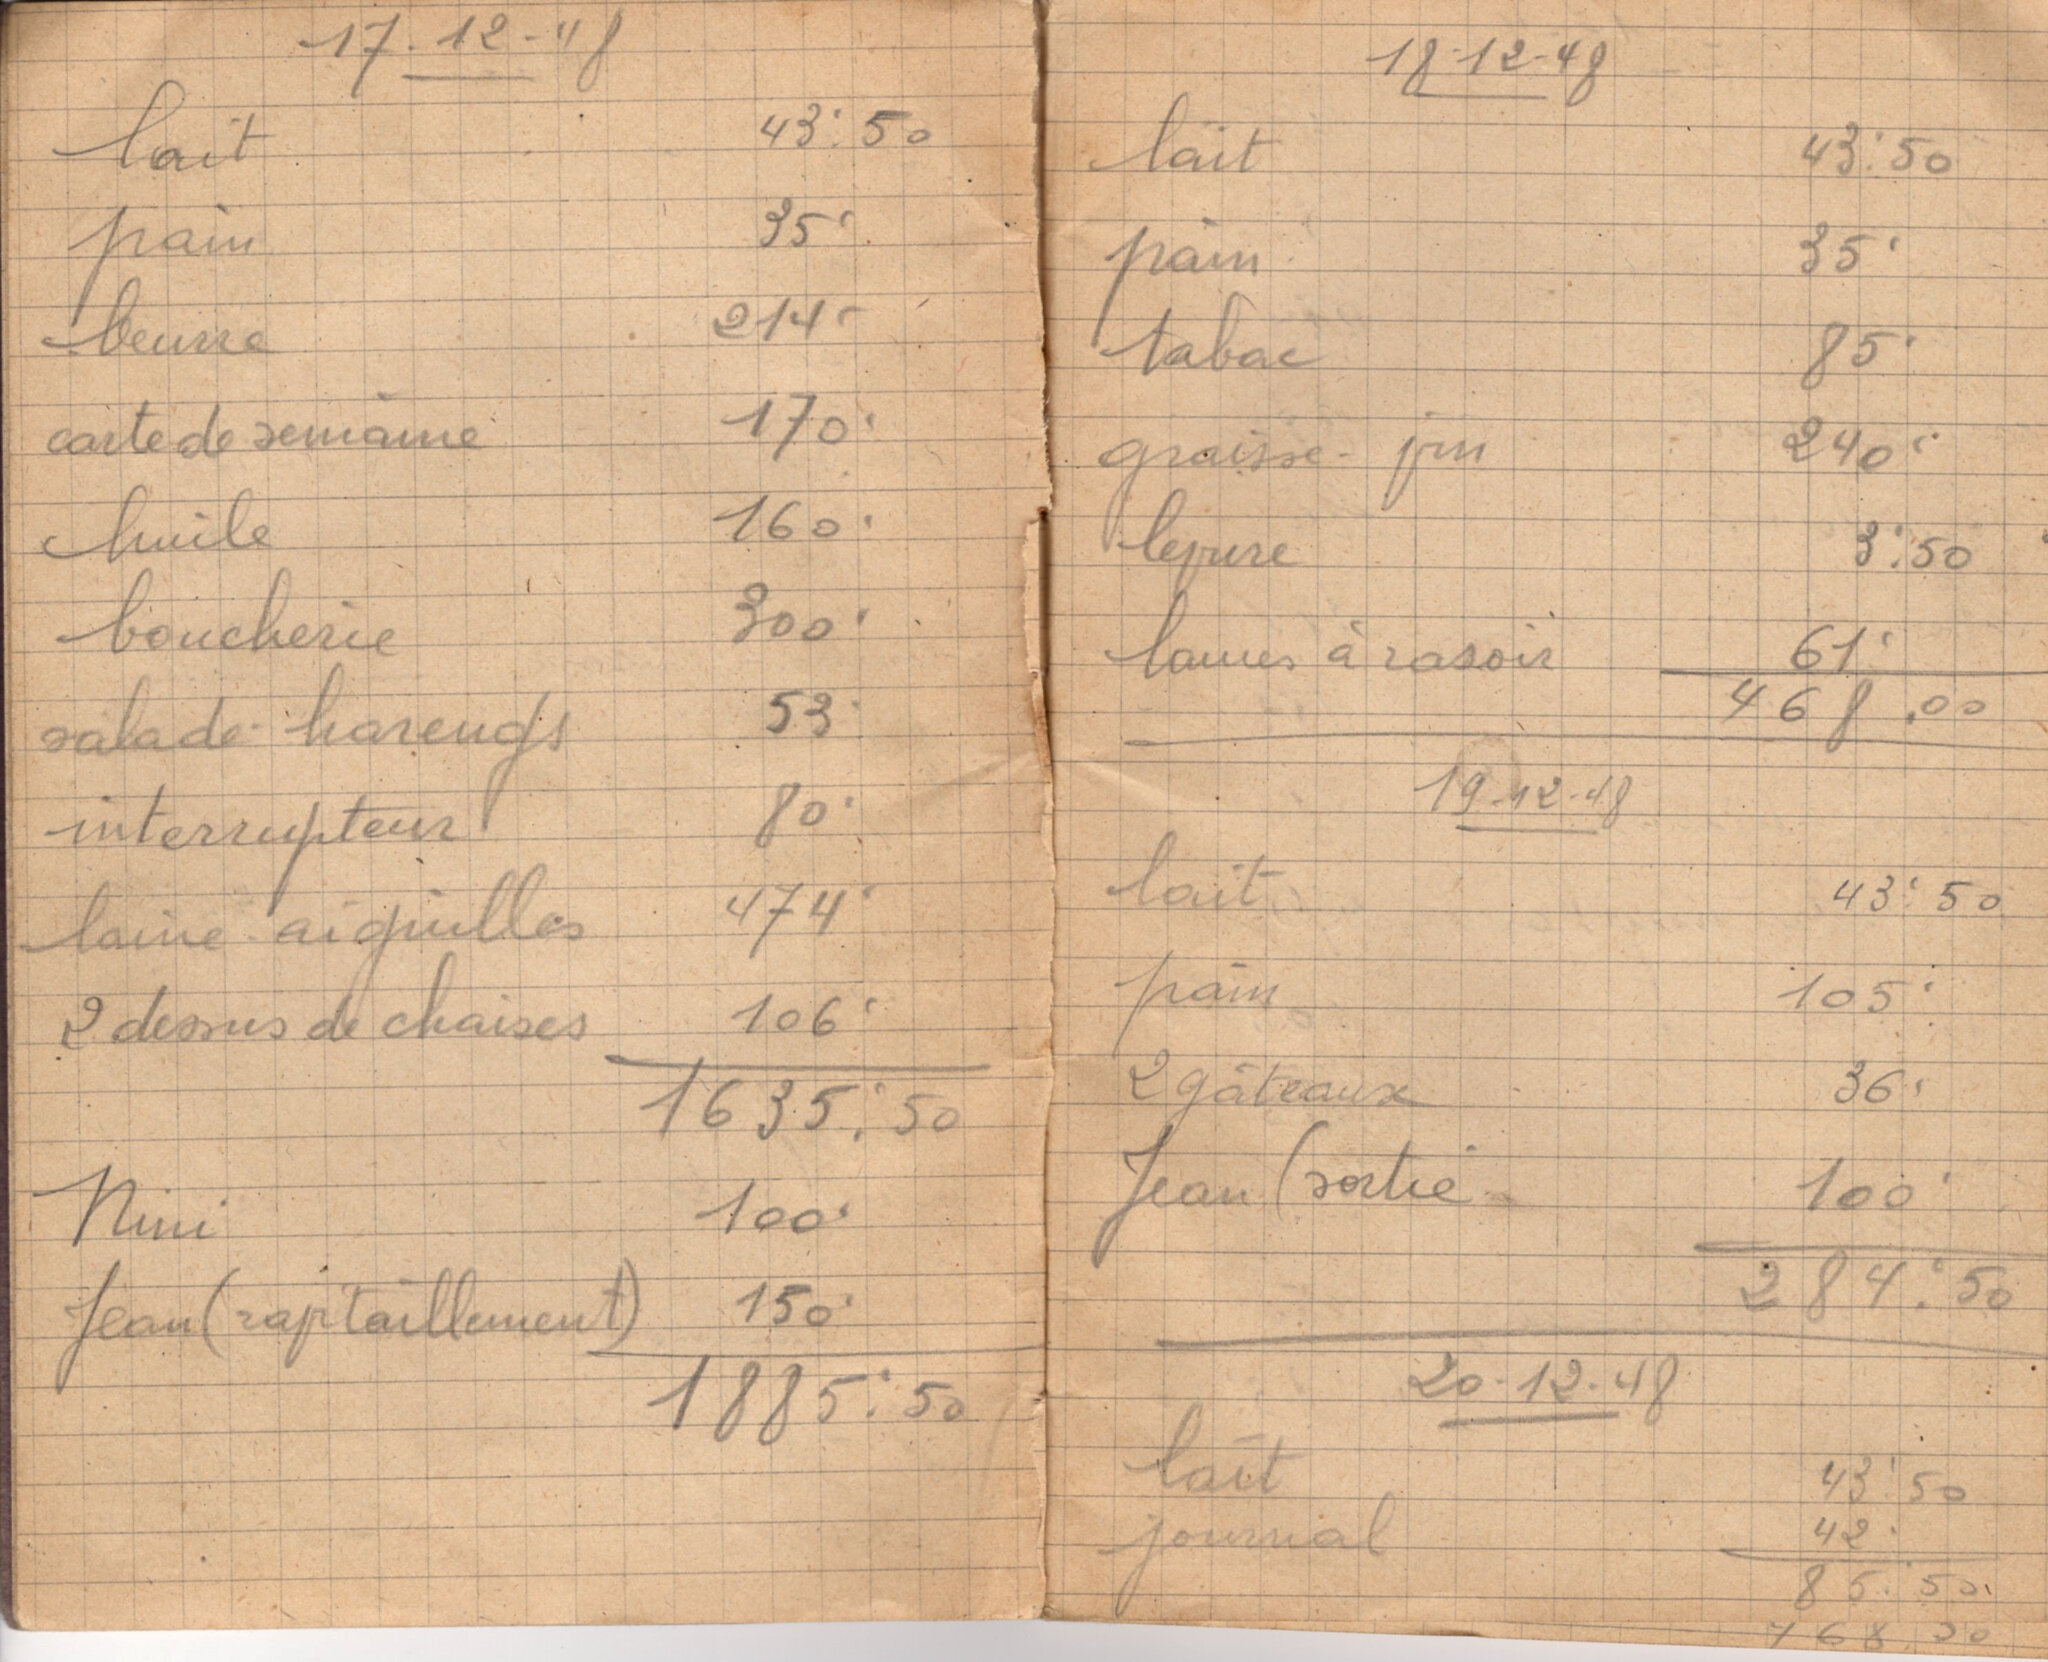 17.12.48
lait 43:50
pain 35'
beurre 214'
carte de semaine 170'
huile 160'
boucherie 300'
salade-harengs 53'
interrupteur 80'
laine-aiguilles 474'
2 dessus de chaises 106'
1635:50
Nini 100'
Jean (raptaillement) 150'
1885:50
18-12-48
lait 43:50
pain 35'
tabac 85'
graisse - 240'
levure 3:50
lames à rasoir 61'
468.00
19-12-48
lait 43:50
pain 105'
2 gâteaux 36'
Jean (sortie 100'
284:50
20-12-48
lait 43:50
journal 42'
85:50